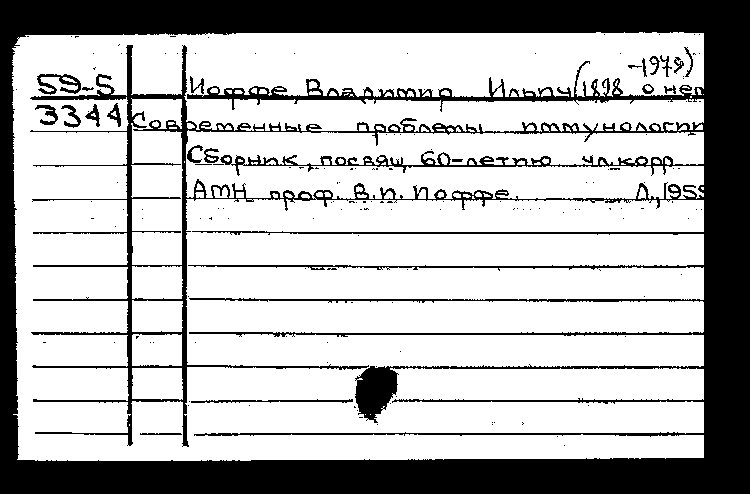 -1979)
59-5 Иоффе, Владимир Ильич (1898, о нем
3344 Современные проблемы иммунологии
Сборник, посвящ. 60-летию чл.корр.
АМН проф. В.И. Иоффе. Л., 1959